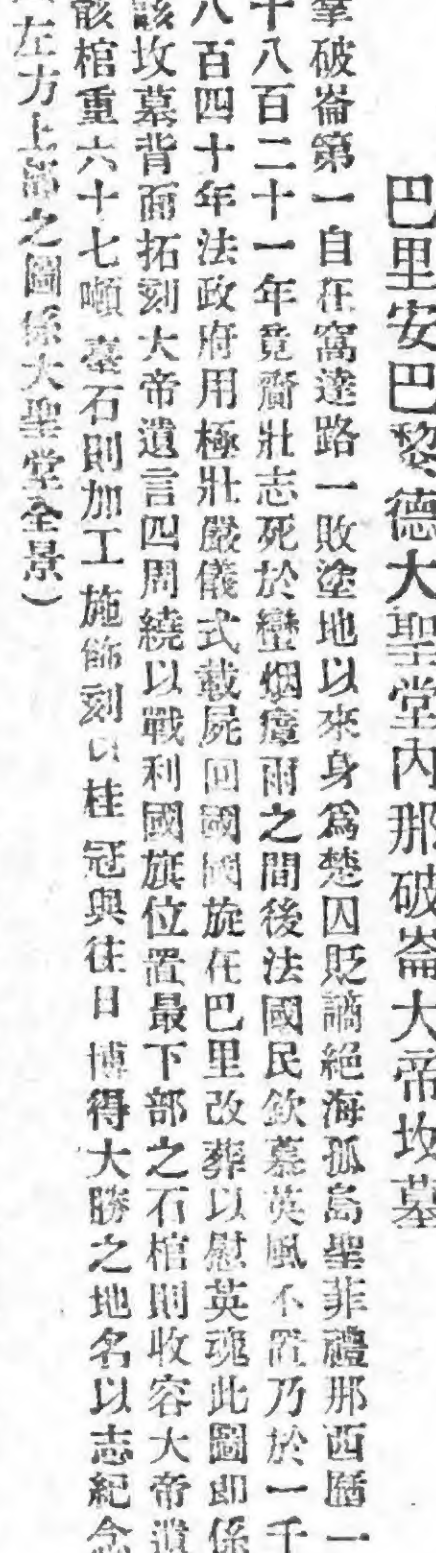 巴里安巴黎德大聖堂内那破崙大帝坟墓
拿破崙第一自在窩達路一敗塗地以來身爲楚囚貶謫絕海孤島聖菲禮那西曆一
千八百二十一年竟齎壯志死於蠻烟瘴雨之間後法國民欽慕英風不置乃於一千
八百四十年法政府用極壯嚴儀式載屍回國國旋在巴里改葬以慰英魂此圖即係
該坟墓背面拓刻大帝遺言四周繞以戰利國旗位置最下部之石棺則收容大帝遺
骸棺重六十七噸臺石則加工施飾刻以桂冠與往日博得大勝之地名以志紀念
左方上部之圖係大聖堂全景)